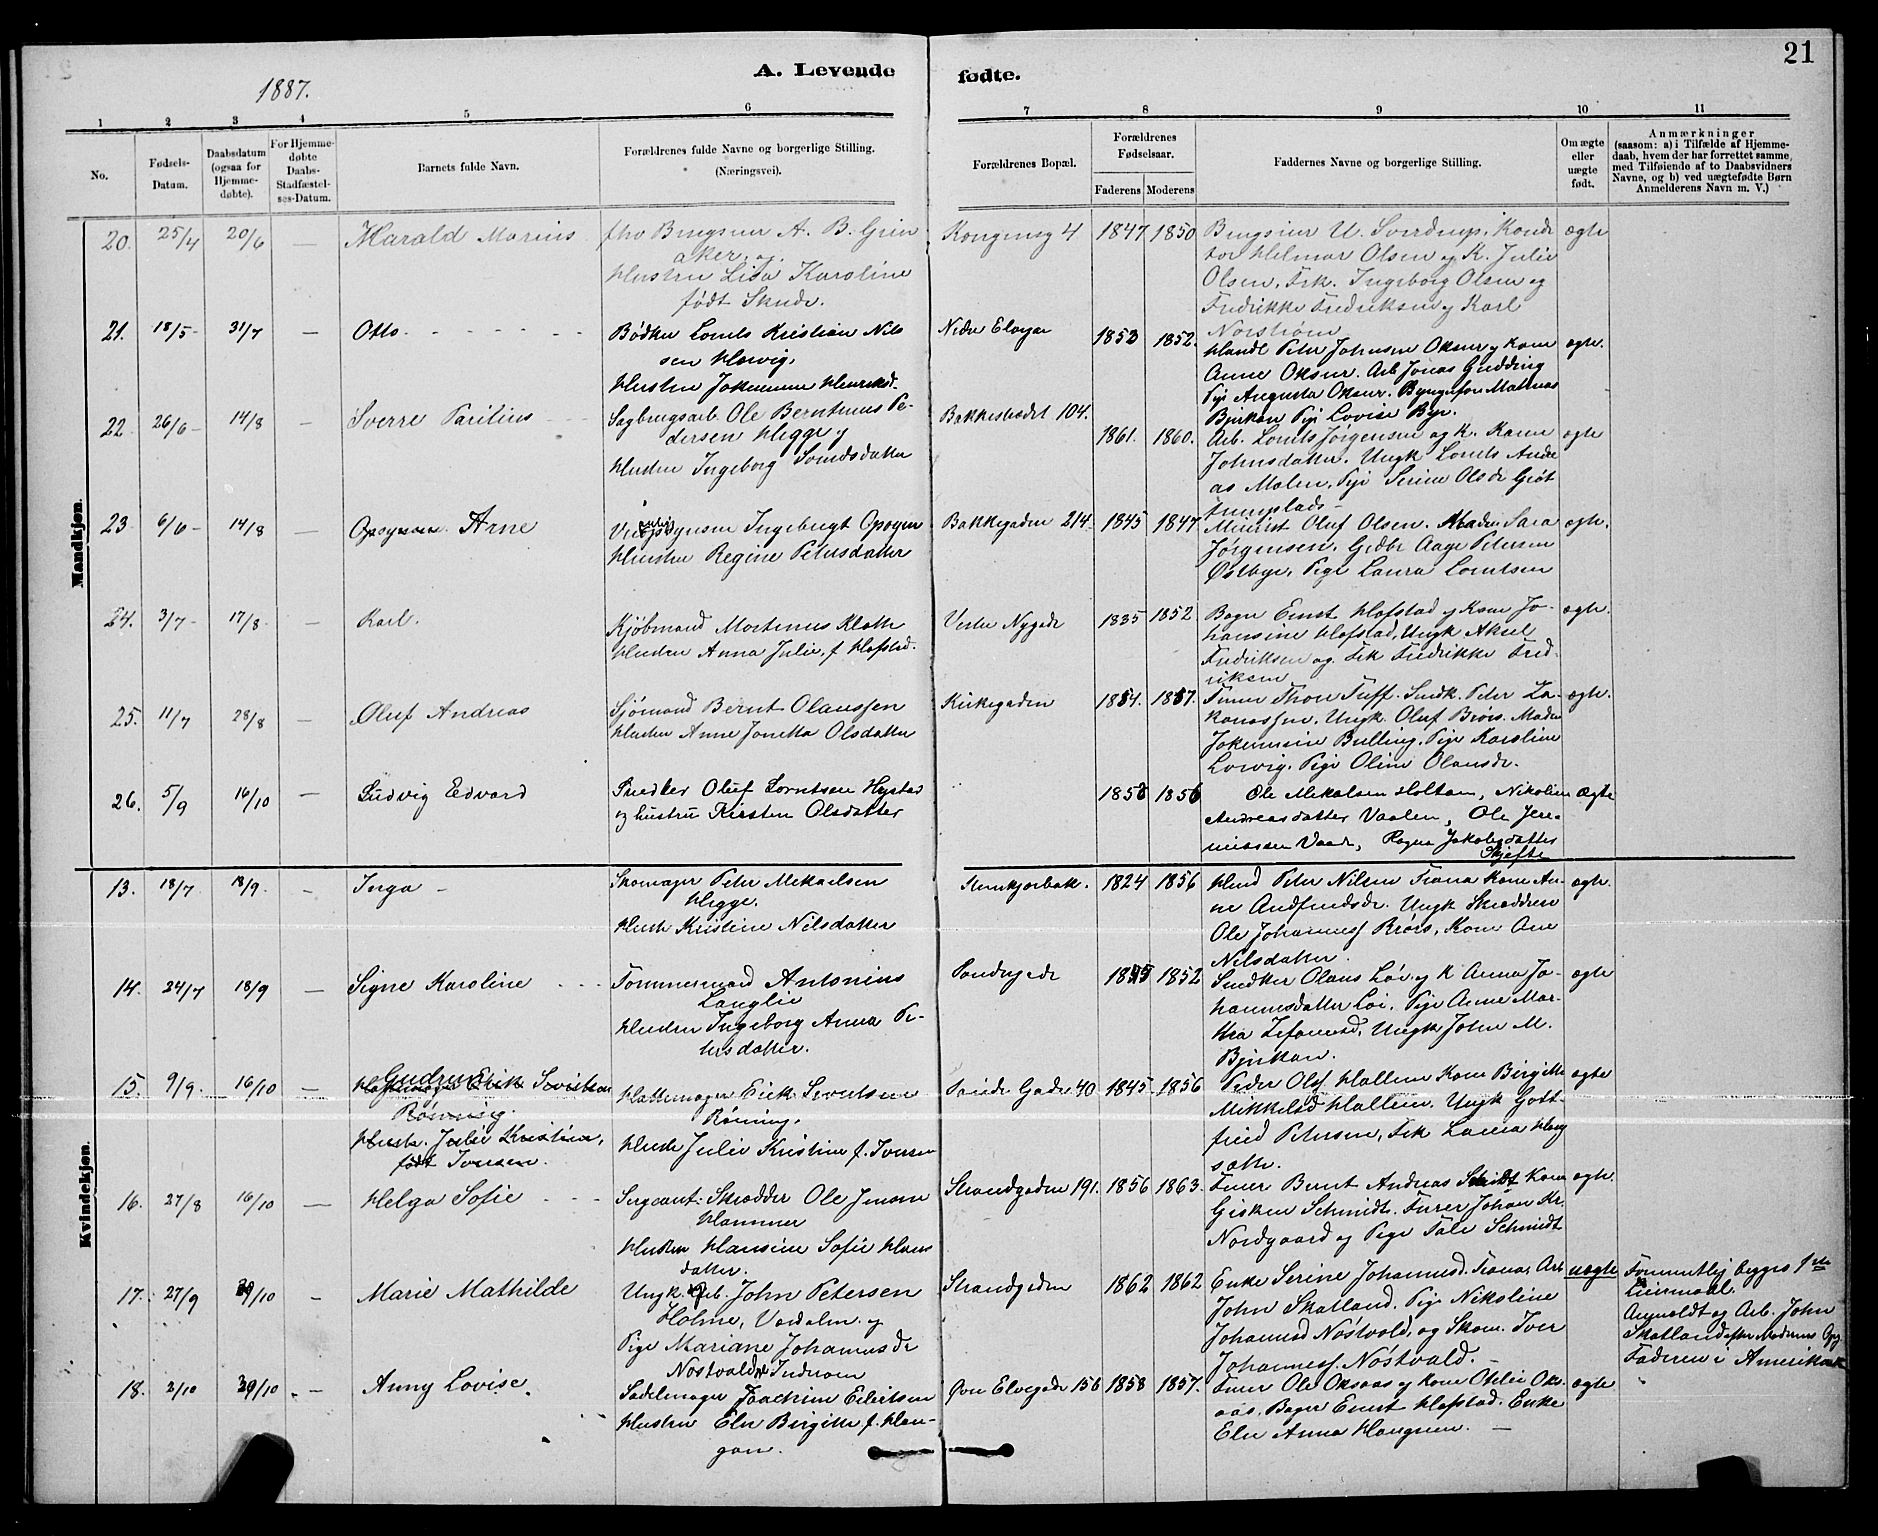 21
A. Levende fødte.
1887.
1 2 3 4 5 6 7 8 9 10 11
No.
Fødsels-Datum.
Daabsdatum (ogsaa for Hjemme-døbte).
For Hjemme-døbte Daabs-Stadfæstel-ses-Datum.
Barnets fulde Navn.
Forældrenes fulde Navne og borgerlige Stilling.
(Næringsvei).
Forældrenes Bopæl.
Forældrenes Fødselsaar.
Faderens Moderens
Faddernes Navne og borgerlige Stilling.
Om ægte eller uægte født.
Anmærkninger
(saasom: a) i Tilfælde af Hjemme-
daab, hvem der har forrettet samme,
med Tilføiende af to Daabsvidners
Navne, og b) ved uægtefødte Børn
Anmelderens Navn m. V.)
Mandkjøn.
20. 25/4 20/6 — Harald Marius
A. B. Grin
aker, og
Hustru Lisa Karoline
født Skude.
Kongensg 4 1847 1850
U. Sverdrup, Konduk
tor Helmar Olsen og K. Julie
Olsen, Frk. Ingeborg Olsen og
Fredrikke Fredriksen og Karl
Norstrøm
ægte
21. 18/5 31/7 — Otto
Bødker Lornts Kristian Nils
sen Hervig,
Hustru Jokumine Henriksd.
Nedre Elvegae 1853 1852.
Handl Peter Johnsen Oksner og Kone
Anne Oksner. Arb Jonas Gudding
Pige Augusta Oksner. Mathias
Bjerkan Pige Lovise Bye.
ægte.
22. 26/6 14/8 Sverre Parilius
Sagbrugsarb Ole Berntinus Pe-
dersen Hegge og
Hustru Ingeborg Lorntsdatter
Bakkestrædet 104. 1861. 1860.
Arb. Lornts Jørgensen og K. Karen
Johnsdatter. Ungk Lornts Andre
as Malen, Pige Serine Olsdr
ægte
23 6/6 14/8 — Arne
Ingebrigt Opsyen
Hustru Regine Petersdatter
Bakkegaden 214. 1845 1847
Oluf Olsen. Madm Sara
Jørgensen. Gjørtler Aage Petersen
Østbye, Pige Laura Lorntsen
ægte.
24. 3/7 17/8 — Karl.
Kjøbmand Mortinus Klatte
Hustru Anna Julie, f. Hofstad.
Vestre Nygade 1835 1852
Bager Ernst Hofstad og Kone Jo-
hansine Hofstad, Ungk Aksel
Fredriksen og Frk Fredrikke Fred-
riksen
ægte.
25. 11/7 28/8 — Oluf Andreas
Sjømand Bernt Olaussen
Hustru Anne Jonetta Olsdatter
Kirkegaden 1854. 1857.
Furer Thore Tuff. Snedk. Peter Za-
kariassen, Ungk. Oluf Brørs. Madm
Jokumine Bulling, Pige Karoline
Lorvig. Pige Oline Olausdr.
ægte.
26. 5/9 16/10 — Ludvig Edvard
Snedker Oluf Lorntsen Heistad
og hustru Kirsten Olsdatter
1858 1856
Ole Mikalsen Holtan, Nikoline
Andreasdatter Vaalen, Ole Jere-
miassen Vaade, Ragna Jakobsdatter
Skjefte
ægte
Kvindekjøn.
13. 18/7 18/9 — Inga
Skomager Peter Mikaelsen
Hegge.
Hustr Kristine Nilsdatter
Stenkjerbak. 1824 1856
Hmd Peter Nilsen Trana Kone An-
ne Andfindsdr. Ungk Skrædder
Ole Johannes Brørs, Kone Ane
Nilsdatter.
ægte.
14. 24/7 18/9 — Signe Karoline
Tømmermand Antonius
Langlie
Hustru Ingeborg Anna Pe-
tersdatter.
Søndregade 1845 1852
Snedker Olaus Løe og K Anna Jo-
hannesdatter Løe. Pige Anne Mar-
tha Zefaniasd, Ungk John M.
Bjerkan.
ægte
15. 9/9 16/10 — Gudrun
Hattemager Erik Sivertsen
Rønning.
Hustr. Julie Kristine,
født Iversen.
Hattemager Erik Sivertsen
Rønning,
Hustr Julie Kristine f. Iversen
Søndre Gade 40 1845 1856
Peder Ols Hallem Kone Birgitte
Mikkelsd Hallem. Ungk Gott
fried Petersen, Frk Laura Haug
sæth.
ægte
16. 27/8 16/10 — Helga Sofie
Sergeant-Skrædder Ole Jensen
Hammer
Hustru Hansine Sofie Hans
datter.
Strandgaden 191. 1856 1863.
Furer Bernt Andreas Schmidt Kone
Gisken Schmidt. Furer Johan Kr.
Nordgaard og Pige Tale Schmidt
ægte.
17. 27/9 30/10 — Marie Mathilde
Ungk. Arb. John Petersen
Holme, Værdalen og
Pige Mariane Johannesdr
Nøstvold, Inderøen
Strandgaden 1862 1862
Enke Serine Johannesd. Trana, Arb
John Skatland. Pige Nikoline
Johannesd Nøstvold, og Skom. Iver
Johannesf. Nøstvald. —
uægte
Formentlig begges 1ste
Leiermaal.
Anmeldt og Arb. John
Skatland efter Moderens Opg
Faderen i Amerika
18. 2/10 30/10 — Anny Lovise.
Sadelmager Joachim Eilertsen
Hustru Elen Birgitte f. Hau-
gan.
Øvre Elvegade 156 1858 1857.
Furer Ole Oksaas og Kone Otelie Oks-
aas. Bager Ernst Hofstad. Enke
Elen Anna Haugnen. —
ægte